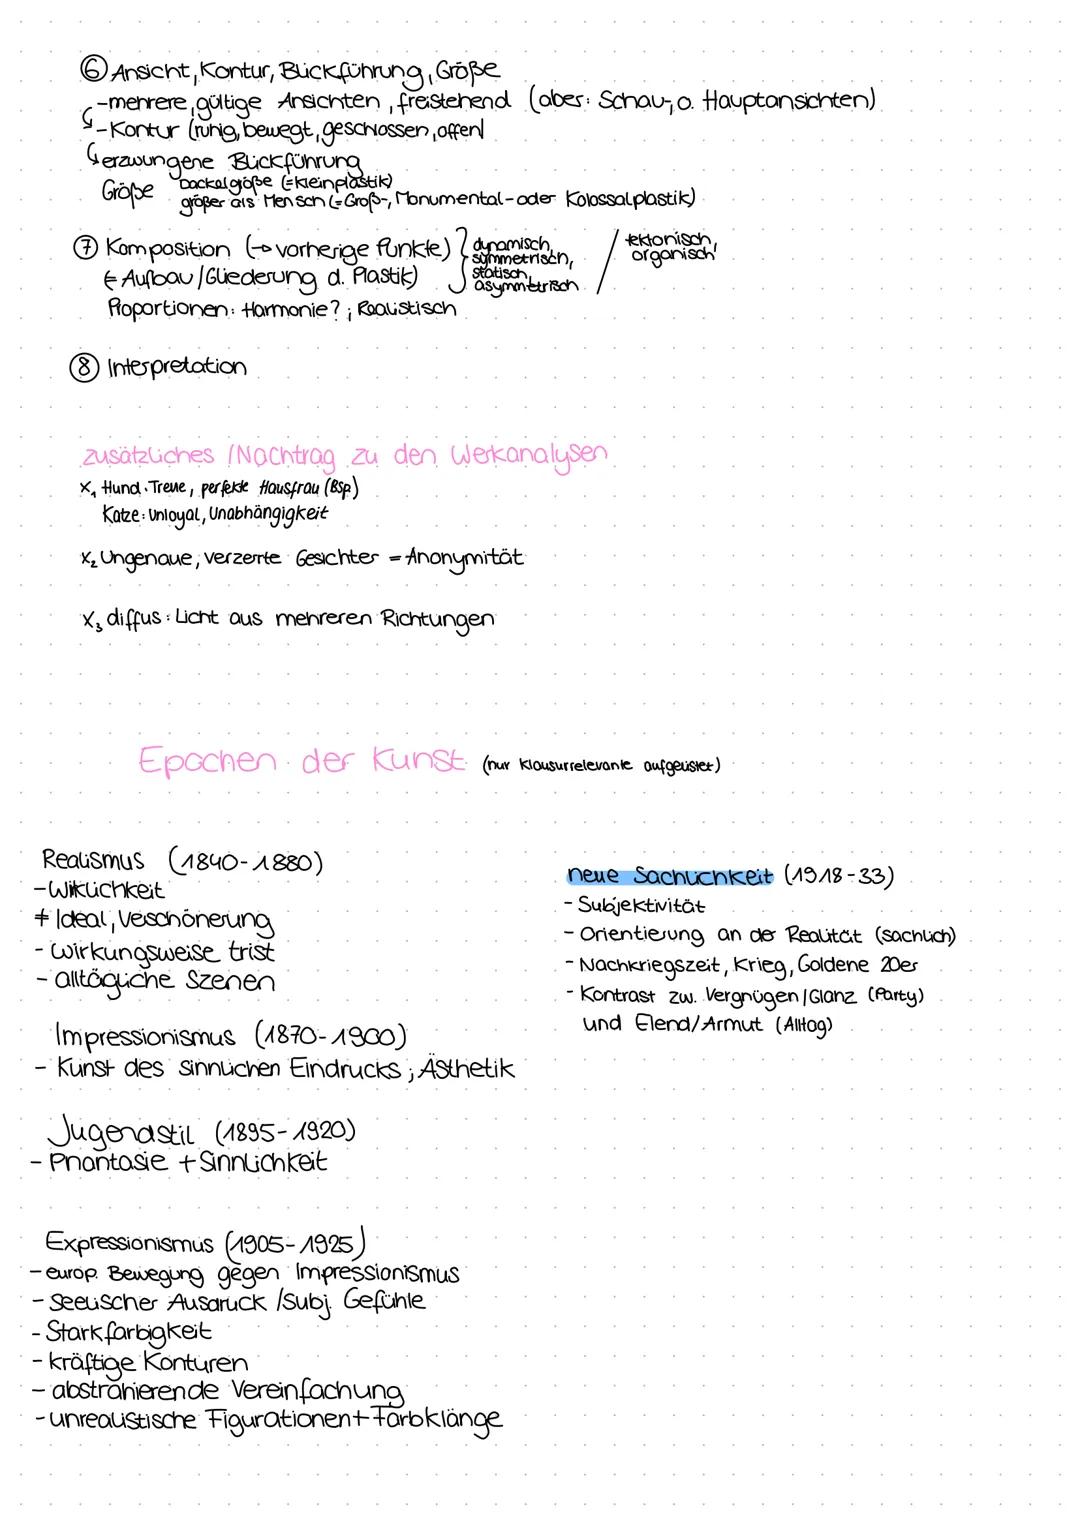 ⑥ Ansicht, Kontur, Blickführung, Größe
-mehrere, gültige Ansichten, freistehend (aber: Schau-, o. Hauptansichten)
-Kontur (ruhig, bewegt, geschlossen, offen)
erzwungene Blickführung
Größe Dackelgröße (=Kleinplastik)
größer als Mensch (=Groß-, Monumental-oder Kolossalplastik)
⑦ Komposition (→ vorherige Punkte) } dynamisch, symmetrisch, statisch, asymmetrisch / tektonisch, organisch
(= Aufbau/Gliederung d. Plastik)
Proportionen: Harmonie?; Realistisch
⑧ Interpretation
zusätzliches /Nachtrag zu den Werkanalysen
X₁ Hund: Treue, perfekte Hausfrau (Bsp.)
Katze: Unloyal, Unabhängigkeit
X₂ Ungenaue, verzerrte Gesichter = Anonymität
X₃ diffus: Licht aus mehreren Richtungen
Epochen der Kunst (nur klausurrelevante aufgelistet)
Realismus (1840-1880)
-Wiklichkeit
≠ Ideal, Veschönerung
- Wirkungsweise trist
- alltägliche Szenen
Impressionismus (1870-1900)
- Kunst des sinnlichen Eindrucks; Ästhetik
Jugendstil (1895-1920)
- Phantasie + Sinnlichkeit
Expressionismus (1905-1925)
- europ. Bewegung gegen Impressionismus
- Seelischer Ausdruck /Subj. Gefühle
- Starkfarbigkeit
- kräftige Konturen
- abstrahierende Vereinfachung
- unrealistische Figurationen + Farbklänge
neue Sachlichkeit (1918-33)
- Subjektivität
- Orientierung an der Realität (sachlich)
- Nachkriegszeit, Krieg, Goldene 20er
- Kontrast zw. Vergnügen/Glanz (Party)
und Elend/Armut (Alltag)